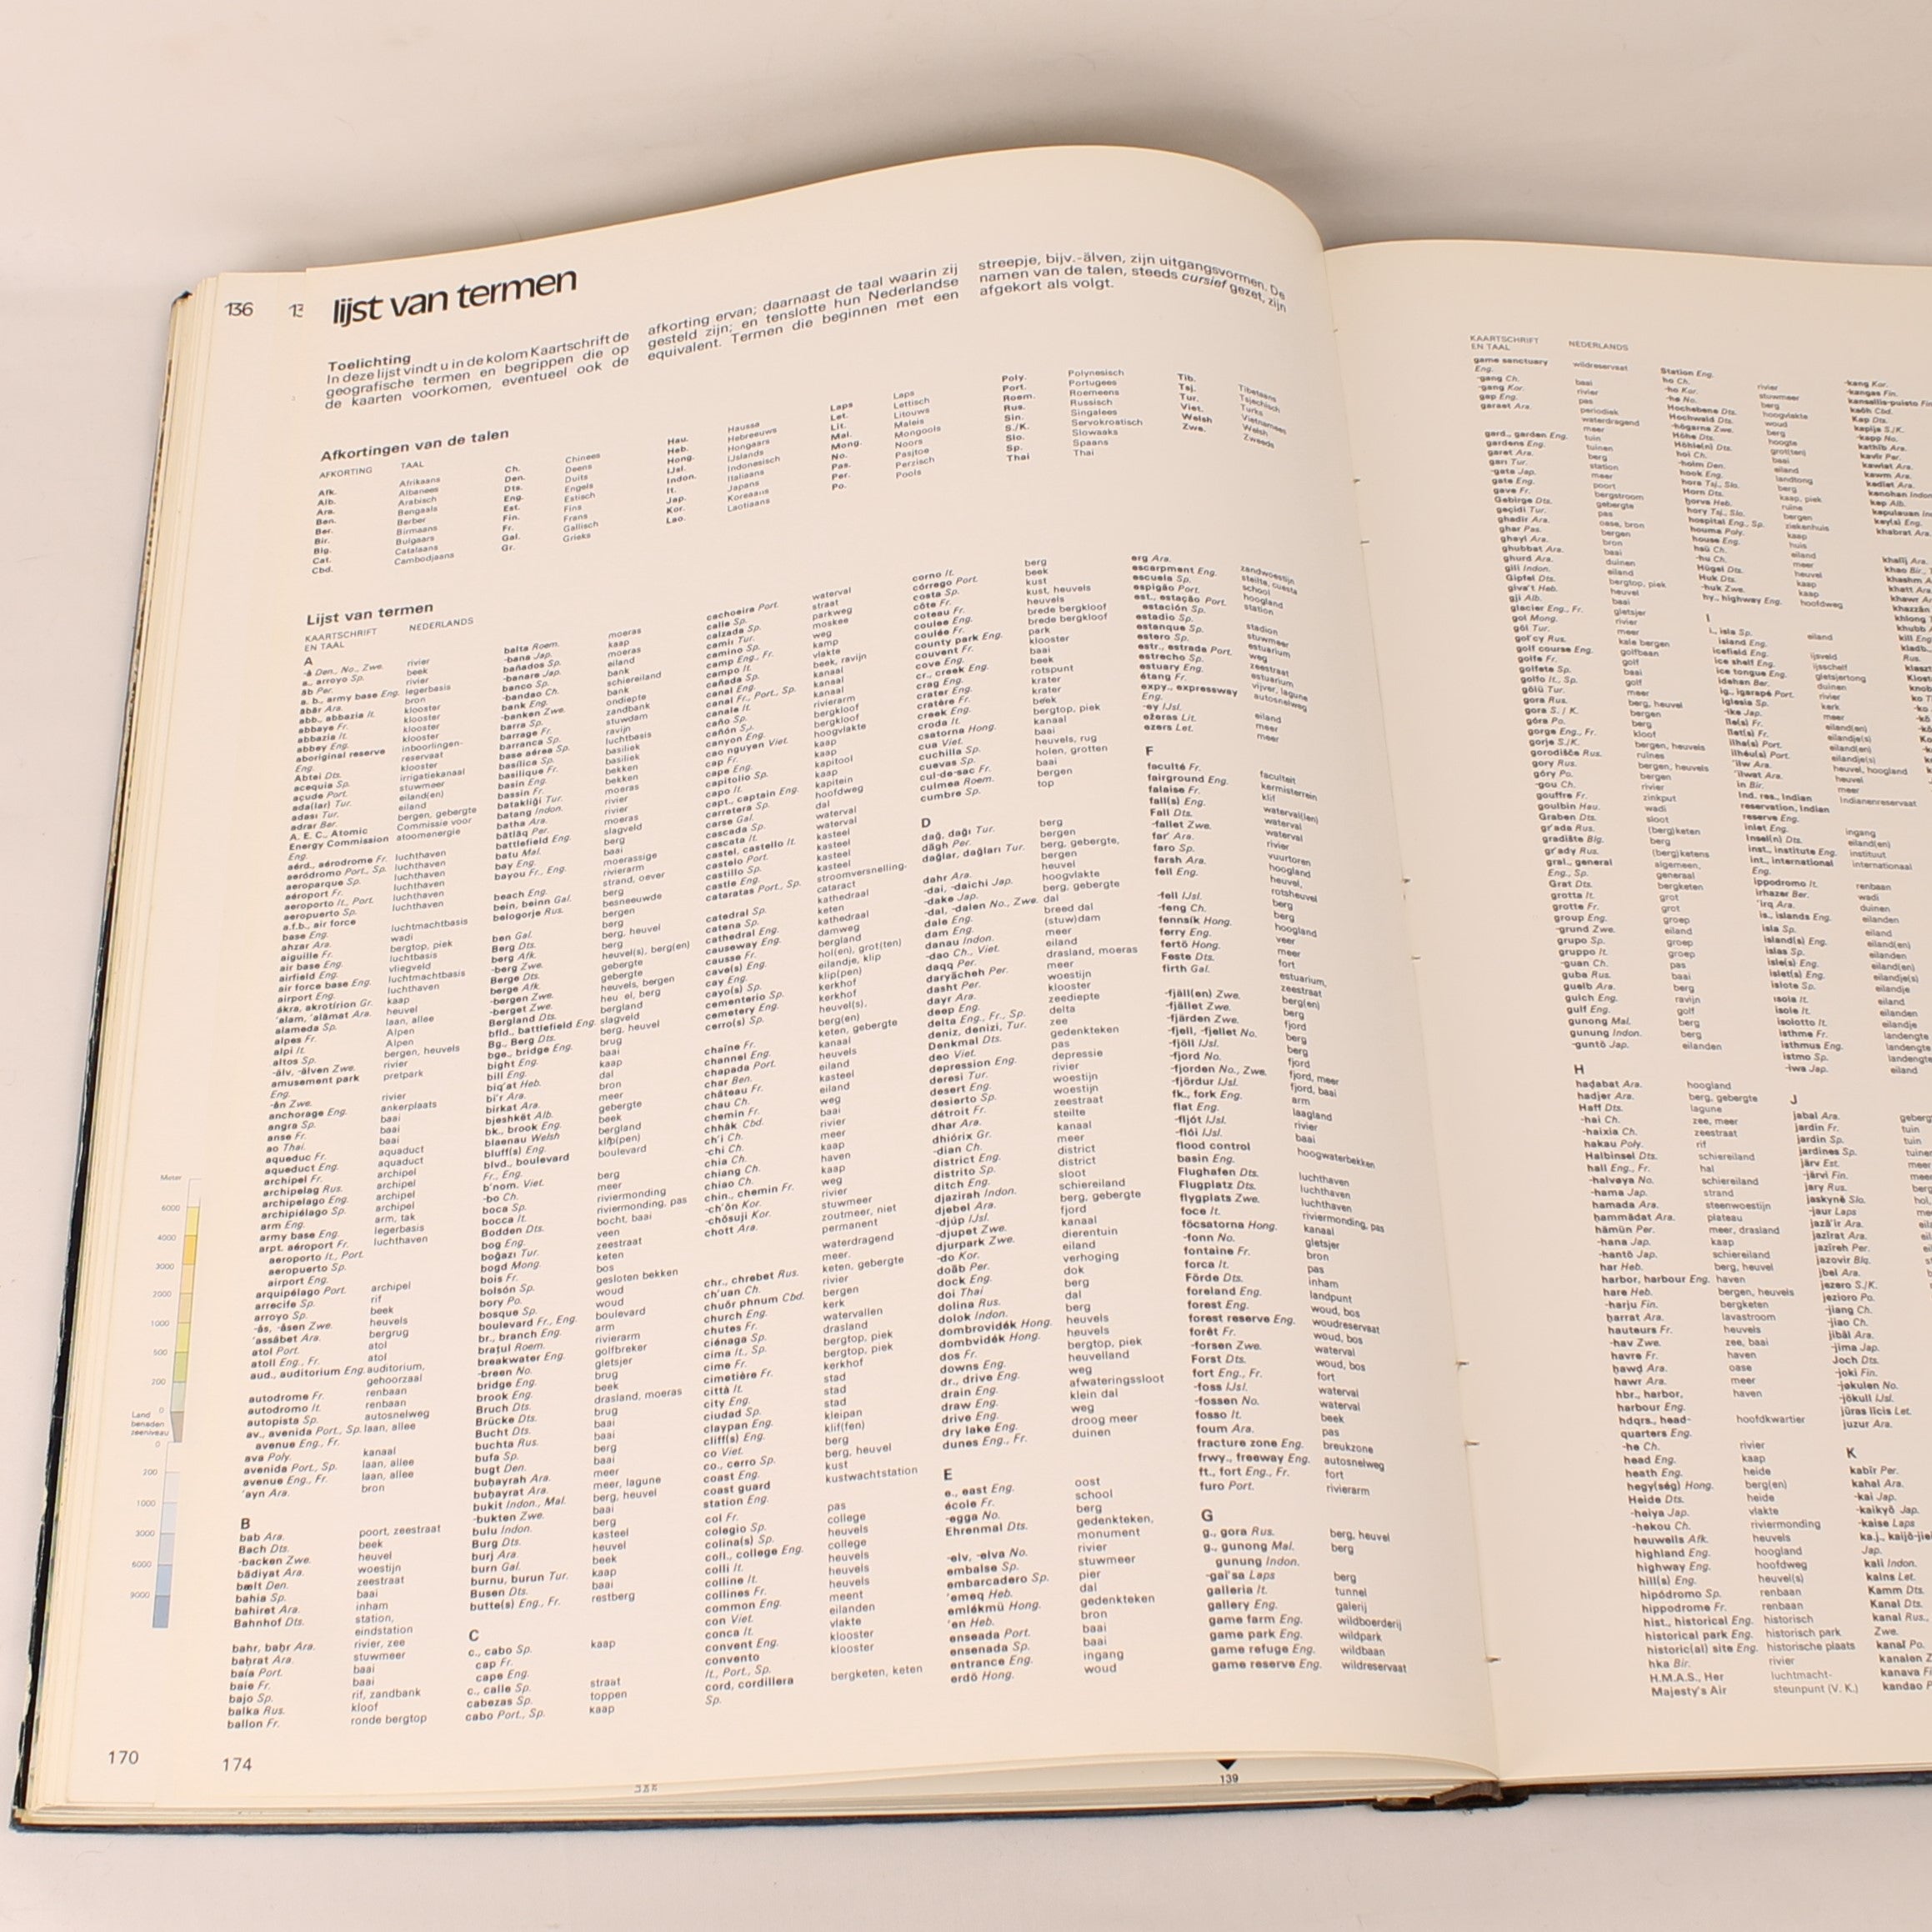 136
lijst van termen
Toelichting
In deze lijst vindt u in de kolom Kaartschrift de
geografische termen en begrippen die op
de kaarten voorkomen, eventueel ook de
afkorting ervan; daarnaast de taal waarin zij
gesteld zijn; en tenslotte hun Nederlandse
equivalent. Termen die beginnen met een
streepje, bijv.-älven, zijn uitgangsvormen. De
namen van de talen, steeds cursief gezet, zijn
afgekort als volgt.
Afkortingen van de talen
AFKORTING TAAL
Afk. Afrikaans
Alb. Albanees
Ara. Arabisch
Ben. Bengaals
Ber. Berber
Bir. Birmaans
Blg. Bulgaars
Cat. Catalaans
Cbd. Cambodjaans
Ch. Chinees
Den. Deens
Dts. Duits
Eng. Engels
Est. Estisch
Fin. Fins
Fr. Frans
Gal. Gallisch
Gr. Grieks
Hau. Haussa
Heb. Hebreeuws
Hong. Hongaars
IJsl. IJslands
Indon. Indonesisch
It. Italiaans
Jap. Japans
Kor. Koreaans
Lao. Laotiaans
Laps Laps
Let. Lettisch
Lit. Litouws
Mal. Maleis
Mong. Mongools
No. Noors
Pas. Pasjtoe
Per. Perzisch
Po. Pools
Poly. Polynesisch
Port. Portugees
Roem. Roemeens
Rus. Russisch
Sin. Singalees
S./K. Servokroatisch
Slo. Slowaaks
Sp. Spaans
Thai Thai
Tib. Tibetaans
Tsj. Tsjechisch
Tur. Turks
Viet. Vietnamees
Welsh Welsh
Zwe. Zweeds
Lijst van termen
KAARTSCHRIFT NEDERLANDS
EN TAAL
A
-å Den., No., Zwe. rivier
a., arroyo Sp. beek
āb Per. rivier
a. b., army base Eng. legerbasis
ābār Ara. bron
abb., abbazia It. klooster
abbaye Fr. klooster
abbazia It. klooster
abbey Eng. klooster
aboriginal reserve inboorlingen-
Eng. reservaat
Abtei Dts. klooster
acequia Sp. irrigatiekanaal
açude Port. stuwmeer
ada(lar) Tur. eiland(en)
adası Tur. eiland
adrar Ber. bergen, gebergte
A. E. C., Atomic Commissie voor
Energy Commission atoomenergie
Eng.
aérd., aérodrome Fr. luchthaven
aeródromo Port., Sp. luchthaven
aeroparque Sp. luchthaven
aéroport Fr. luchthaven
aeroporto It., Port. luchthaven
aeropuerto Sp. luchthaven
a.f.b., air force
base Eng. luchtmachtbasis
ahzar Ara. wadi
aiguille Fr. bergtop, piek
air base Eng. luchtbasis
airfield Eng. vliegveld
air force base Eng. luchtmachtbasis
airport Eng. luchthaven
ákra, akrotírion Gr. kaap
'alam, 'alāmat Ara. heuvel
alameda Sp. laan, allee
alpes Fr. Alpen
alpi It. Alpen
altos Sp. bergen, heuvels
-älv, -älven Zwe. rivier
amusement park pretpark
Eng.
-ån Zwe. rivier
anchorage Eng. ankerplaats
angra Sp. baai
anse Fr. baai
ao Thai. baai
aqueduc Fr. aquaduct
aqueduct Eng. aquaduct
archipel Fr. archipel
archipelag Rus. archipel
archipelago Eng. archipel
archipiélago Sp. archipel
arm Eng. arm, tak
army base Eng. legerbasis
arpt. aéroport Fr. luchthaven
aeroporto It., Port.
aeropuerto Sp.
airport Eng.
arquipélago Port. archipel
arrecife Sp. rif
arroyo Sp. beek
-ås, -åsen Zwe. heuvels
'assābet Ara. bergrug
atol Port. atol
atoll Eng., Fr. atol
aud., auditorium Eng. auditorium,
gehoorzaal
autodrome Fr. renbaan
autodromo It. renbaan
autopista Sp. autosnelweg
av., avenida Port., Sp. laan, allee
avenue Eng., Fr.
ava Poly. kanaal
avenida Port., Sp. laan, allee
avenue Eng., Fr. laan, allee
'ayn Ara. bron
B
bab Ara. poort, zeestraat
Bach Dts. beek
-backen Zwe. heuvel
bādiyat Ara. woestijn
bælt Den. zeestraat
bahia Sp. baai
bahiret Ara. inham
Bahnhof Dts. station,
eindstation
bahr, baḥr Ara. rivier, zee
baḥrat Ara. stuwmeer
baía Port. baai
baie Fr. baai
bajo Sp. rif, zandbank
balka Rus. kloof
ballon Fr. ronde bergtop
balta Roem. moeras
-bana Jap. kaap
bañados Sp. moeras
-banare Jap. eiland
banco Sp. bank
-bandao Ch. schiereiland
bank Eng. bank
-banken Zwe. ondiepte
barra Sp. zandbank
barrage Fr. stuwdam
barranca Sp. ravijn
base aérea Sp. luchtbasis
basílica Sp. basiliek
basilique Fr. basiliek
basin Eng. bekken
bassin Fr. bekken
bataklığı Tur. moeras
batang Indon. rivier
batha Ara. rivier
bātlāq Per. moeras
battlefield Eng. slagveld
batu Mal. berg
bay Eng. baai
bayou Fr., Eng. moerassige
rivierarm
beach Eng. strand, oever
bein, beinn Gal. berg
belogorje Rus. besneeuwde
bergen
ben Gal. berg
Berg Dts. berg, heuvel
berg Afk. berg
-berg Zwe. heuvel(s), berg(en)
Berge Dts. gebergte
berge Afk. gebergte
-bergen Zwe. heuvels, bergen
-berget Zwe.
Bergland Dts. bergland
bfld., battlefield Eng. slagveld
Bg., Berg Dts. berg, heuvel
bge., bridge Eng. brug
bight Eng. baai
bill Eng. kaap
biq'at Heb. dal
bi'r Ara. bron
birkat Ara. meer
bjeshkët Alb. gebergte
bk., brook Eng. beek
blaenau Welsh bergland
bluff(s) Eng. klip(pen)
blvd., boulevard boulevard
Fr., Eng.
b'nom. Viet. berg
-bo Ch. meer
boca Sp. riviermonding
bocca It. riviermonding, pas
Bodden Dts. bocht, baai
bog Eng. veen
boğazı Tur. zeestraat
bogd Mong. keten
bois Fr. bos
bolsón Sp. gesloten bekken
bory Po. woud
bosque Sp. woud
boulevard Fr., Eng. boulevard
br., branch Eng. arm
braţul Roem. rivierarm
breakwater Eng. golfbreker
-breen No. gletsjer
bridge Eng. brug
brook Eng. beek
Bruch Dts. drasland, moeras
Brücke Dts. brug
Bucht Dts. baai
buchta Rus. baai
bufa Sp. berg
bugt Den. baai
buḥayrah Ara. meer
buḥayrat Ara. meer, lagune
bukit Indon., Mal. berg, heuvel
-bukten Zwe. baai
bulu Indon. berg
Burg Dts. kasteel
burj Ara. heuvel
burn Gal. beek
burnu, burun Tur. kaap
Busen Dts. baai
butte(s) Eng., Fr. restberg
C
c., cabo Sp. kaap
cap Fr.
cape Eng.
c., calle Sp. straat
cabezas Sp. toppen
cabo Port., Sp. kaap
cachoeira Port. waterval
calle Sp. straat
calzada Sp. parkweg
camii Tur. moskee
camino Sp. weg
camp Eng., Fr. kamp
campo It. vlakte
cañada Sp. beek, ravijn
canal Eng. kanaal
canal Fr., Port., Sp. kanaal
canale It. kanaal
caño Sp. rivierarm
cañón Sp. bergkloof
canyon Eng. bergkloof
cao nguyen Viet. hoogvlakte
cap Fr. kaap
cape Eng. kaap
capitolio Sp. kapitool
capo It. kaap
capt., captain Eng. kapitein
carretera Sp. hoofdweg
carse Gal. dal
cascada Sp. waterval
cascata It. waterval
castel, castello It. kasteel
castelo Port. kasteel
castillo Sp. kasteel
castle Eng. kasteel
cataratas Port., Sp. stroomversnelling-
cataract
catedral Sp. kathedraal
catena Sp. keten
cathedral Eng. kathedraal
causeway Eng. damweg
causse Fr. bergland
cave(s) Eng. hol(en), grot(ten)
cay Eng. eilandje, klip
cayo(s) Sp. klip(pen)
cementerio Sp. kerkhof
cemetery Eng. kerkhof
cerro(s) Sp. heuvel(s),
berg(en)
chaîne Fr. keten, gebergte
channel Eng. kanaal
chapada Port. heuvels
char Ben. eiland
château Fr. kasteel
chau Ch. eiland
chemin Fr. weg
chhâk Cbd. baai
ch'i Ch. rivier
-chi Ch. meer
chia Ch. kaap
chiang Ch. haven
chiao Ch. kaap
chin., chemin Fr. weg
-ch'ŏn Kor. rivier
-chŏsuji Kor. stuwmeer
chott Ara. zoutmeer, niet
permanent
waterdragend
meer.
chr., chrebet Rus. keten, gebergte
ch'uan Ch. rivier
chuŏr phnum Cbd. bergen
church Eng. kerk
chutes Fr. watervallen
ciénaga Sp. drasland
cima It., Sp. bergtop, piek
cime Fr. bergtop, piek
cimetière Fr. kerkhof
città It. stad
city Eng. stad
ciudad Sp. stad
claypan Eng. kleipan
cliff(s) Eng. klif(fen)
co Viet. berg
co., cerro Sp. berg, heuvel
coast Eng. kust
coast guard kustwachtstation
station Eng.
col Fr. pas
colegio Sp. college
colina(s) Sp. heuvels
coll., college Eng. college
colli It. heuvels
colline It. heuvels
collines Fr. heuvels
common Eng. meent
con Viet. eilanden
conca It. vlakte
convent Eng. klooster
convento klooster
It., Port., Sp.
cord, cordillera bergketen, keten
Sp.
corno It. berg
córrego Port. beek
costa Sp. kust
côte Fr. kust, heuvels
coteau Fr. heuvels
coulee Eng. brede bergkloof
coulée Fr. brede bergkloof
county park Eng. park
couvent Fr. klooster
cove Eng. baai
cr., creek Eng. beek
crag Eng. rotspunt
crater Eng. krater
cratère Fr. krater
creek Eng. beek
croda It. bergtop, piek
csatorna Hong. kanaal
cua Viet. baai
cuchilla Sp. heuvels, rug
cuevas Sp. holen, grotten
cul-de-sac Fr. baai
culmea Roem. bergen
cumbre Sp. top
D
dağ, dağı Tur. berg
dāgh Per. bergen
dağlar, dağları Tur. berg, gebergte,
bergen
dahr Ara. heuvel
-dai, -daichi Jap. hoogvlakte
-dake Jap. berg, gebergte
-dal, -dalen No., Zwe. dal
dale Eng. breed dal
dam Eng. (stuw)dam
danau Indon. meer
-dao Ch., Viet. eiland
daqq Per. drasland, moeras
daryācheh Per. meer
dasht Per. woestijn
dayr Ara. klooster
deep Eng. zeediepte
delta Eng., Fr., Sp. delta
deniz, denizi, Tur. zee
Denkmal Dts. gedenkteken
deo Viet. pas
depression Eng. depressie
deresi Tur. rivier
desert Eng. woestijn
desierto Sp. woestijn
détroit Fr. zeestraat
dhar Ara. steilte
dhiórix Gr. kanaal
-dian Ch. meer
district Eng. district
distrito Sp. district
ditch Eng. sloot
djazirah Indon. schiereiland
djebel Ara. berg, gebergte
-djúp IJsl. fjord
-djupet Zwe. kanaal
djurpark Zwe. dierentuin
-do Kor. eiland
doāb Per. verhoging
dock Eng. dok
doi Thai berg
dolina Rus. dal
dolok Indon. berg
dombrovidék Hong. heuvels
dombvidék Hong. heuvels
dos Fr. bergtop, piek
downs Eng. heuvelland
dr., drive Eng. weg
drain Eng. afwateringssloot
draw Eng. klein dal
drive Eng. weg
dry lake Eng. droog meer
dunes Eng., Fr. duinen
E
e., east Eng. oost
école Fr. school
-egga No. berg
Ehrenmal Dts. gedenkteken,
monument
-elv, -elva No. rivier
embalse Sp. stuwmeer
embarcadero Sp. pier
'emeq Heb. dal
emlékmü Hong. gedenkteken
'en Heb. bron
enseada Port. baai
ensenada Sp. baai
entrance Eng. ingang
erdö Hong. woud
erg Ara. zandwoestijn
escarpment Eng. steilte, cuesta
escuela Sp. school
espigão Port. hoogland
est., estação Port. station
estación Sp.
estadio Sp. stadion
estanque Sp. stuwmeer
estero Sp. estuarium
estr., estrada Port. weg
estrecho Sp. zeestraat
estuary Eng. estuarium
étang Fr. vijver, lagune
expy., expressway autosnelweg
Eng.
-ey IJsl. eiland
ežeras Lit. meer
ezers Let. meer
F
faculté Fr. faculteit
fairground Eng. kermisterrein
falaise Fr. klif
fall(s) Eng. waterval(len)
Fall Dts. waterval
-fallet Zwe. waterval
far' Ara. rivier
faro Sp. vuurtoren
farsh Ara. hoogland
fell Eng. heuvel,
rotsheuvel
-fell IJsl. berg
-feng Ch. berg
fennsík Hong. hoogland
ferry Eng. veer
fertö Hong. meer
Feste Dts. fort
firth Gal. estuarium,
zeestraat
-fjäll(en) Zwe. berg(en)
-fjället Zwe. berg
-fjärden Zwe. fjord
-fjell, -fjellet No. berg
-fjöll IJsl. berg
-fjord No. fjord
-fjorden No., Zwe. fjord, meer
-fjördur IJsl. fjord, baai
fk., fork Eng. arm
flat Eng. laagland
-fljót IJsl. rivier
-flói IJsl. baai
flood control hoogwaterbekken
basin Eng.
Flughafen Dts. luchthaven
Flugplatz Dts. luchthaven
flygplats Zwe. luchthaven
foce It. riviermonding, pas
föcsatorna Hong. kanaal
-fonn No. gletsjer
fontaine Fr. bron
forca It. pas
Förde Dts. inham
foreland Eng. landpunt
forest Eng. woud, bos
forest reserve Eng. woudreservaat
forêt Fr. woud, bos
-forsen Zwe. waterval
Forst Dts. woud, bos
fort Eng., Fr. fort
-foss IJsl. waterval
-fossen No. waterval
fosso It. beek
foum Ara. pas
fracture zone Eng. breukzone
frwy., freeway Eng. autosnelweg
ft., fort Eng., Fr. fort
furo Port. rivierarm
G
g., gora Rus. berg, heuvel
g., gunong Mal. berg
gunung Indon.
-gai'sa Laps berg
galleria It. tunnel
gallery Eng. galerij
game farm Eng. wildboerderij
game park Eng. wildpark
game refuge Eng. wildbaan
game reserve Eng. wildreservaat
170
174
139
Meter
6000
4000
3000
2000
1000
500
200
0
Land
beneden
zeeniveau
0
200
1000
3000
6000
9000
KAARTSCHRIFT NEDERLANDS
EN TAAL
game sanctuary wildreservaat
Eng.
-gang Ch. baai
-gang Kor. rivier
gap Eng. pas
garaet Ara. periodiek
waterdragend
meer
gard., garden Eng. tuin
gardens Eng. tuinen
garet Ara. berg
garı Tur. station
-gata Jap. meer
gate Eng. poort
gave Fr. bergstroom
Gebirge Dts. gebergte
geçidi Tur. pas
ghadir Ara. oase, bron
ghar Pas. bergen
ghayl Ara. bron
ghubbat Ara. baai
ghurd Ara. duinen
gili Indon. eiland
Gipfel Dts. bergtop, piek
giv'at Heb. heuvel
gji Alb. baai
glacier Eng., Fr. gletsjer
gol Mong. rivier
göl Tur. meer
gol'cy Rus. kale bergen
golf course Eng. golfbaan
golfe Fr. golf
golfete Sp. baai
golfo It., Sp. golf
gölü Tur. meer
gora Rus. berg, heuvel
gora S./K. bergen
góra Po. berg
gorge Eng., Fr. kloof
gorje S./K. bergen, heuvels
gorodišče Rus. ruïnes
gory Rus. bergen, heuvels
góry Po. bergen
-gou Ch. rivier
gouffre Fr. zinkput
goulbin Hau. wadi
Graben Dts. sloot
gr'ada Rus. (berg)keten
gradište Blg. berg
gr'ady Rus. (berg)ketens
gral., general algemeen,
Eng., Sp. generaal
Grat Dts. bergketen
grotta It. grot
grotte Fr. grot
group Eng. groep
-grund Zwe. eiland
grupo Sp. groep
gruppo It. groep
-guan Ch. pas
guba Rus. baai
guelb Ara. berg
gulch Eng. ravijn
gulf Eng. golf
gunong Mal. berg
gunung Indon. berg
-guntō Jap. eilanden
H
haḍabat Ara. hoogland
hadjer Ara. berg, gebergte
Haff Dts. lagune
-hai Ch. zee, meer
-haixia Ch. zeestraat
hakau Poly. rif
Halbinsel Dts. schiereiland
hall Eng., Fr. hal
-halvøya No. schiereiland
-hama Jap. strand
hamada Ara. steenwoestijn
ḥammādat Ara. plateau
hāmūn Per. meer, drasland
-hana Jap. kaap
-hantō Jap. schiereiland
har Heb. berg, heuvel
harbor, harbour Eng. haven
hare Heb. bergen, heuvels
-harju Fin. bergketen
ḥarrat Ara. lavastroom
hauteurs Fr. heuvels
-hav Zwe. zee, baai
havre Fr. haven
ḥawḍ Ara. oase
hawr Ara. meer
hbr., harbor, haven
harbour Eng.
hdqrs., head- hoofdkwartier
quarters Eng.
-he Ch. rivier
head Eng. kaap
heath Eng. heide
hegy(ség) Hong. berg(en)
Heide Dts. heide
-heiya Jap. vlakte
-hekou Ch. riviermonding
heuwells Afk. heuvels
highland Eng. hoogland
highway Eng. hoofdweg
hill(s) Eng. heuvel(s)
hipódromo Sp. renbaan
hippodrome Fr. renbaan
hist., historical Eng. historisch
historical park Eng. historisch park
historic(al) site Eng. historische plaats
hka Bir. rivier
H.M.A.S., Her luchtmacht-
Majesty's Air steunpunt (V. K.)
Station Eng.
ho Ch. rivier
-ho Kor. stuwmeer
-hø No. berg
Hochebene Dts. hoogvlakte
Hochwald Dts. woud
-högarna Zwe. berg
Höhe Dts. hoogte
Höhle(n) Dts. grot(ten)
hoi Ch. baai
-holm Den. eiland
hook Eng. landtong
hora Tsj., Slo. berg
Horn Dts. kaap, piek
horva Heb. ruïne
hory Tsj., Slo. bergen
hospital Eng., Sp. ziekenhuis
houma Poly. kaap
house Eng. huis
hsü Ch. eiland
-hu Ch. meer
Hügel Dts. heuvel
Huk Dts. kaap
-huk Zwe. kaap
hy., highway Eng. hoofdweg
I
i., isla Sp. eiland
island Eng.
icefield Eng. ijsveld
ice shelf Eng. ijsschelf
ice tongue Eng. gletsjertong
idehan Ber. duinen
ig., igarapé Port. rivier
iglesia Sp. kerk
-ike Jap. meer
île(s) Fr. eiland(en)
îlet(s) Fr. eilandje(s)
ilha(s) Port. eiland(en)
ilhéu(s) Port. eilandje(s)
'ilw Ara. heuvel, hoogland
'ilwat Ara. heuvel
in Bir. meer
Ind. res., Indian Indianenreservaat
reservation, Indian
reserve Eng.
inlet Eng. ingang
Insel(n) Dts. eiland(en)
inst., institute Eng. instituut
int., international internationaal
Eng.
ippodromo It. renbaan
irhazer Ber. wadi
'irq Ara. duinen
is., islands Eng. eilanden
isla Sp. eiland
island(s) Eng. eiland(en)
islas Sp. eilanden
isle(s) Eng. eiland(en)
islet(s) Eng. eilandje(s)
islote Sp. eilandje
isola It. eiland
isole It. eilanden
isolotto It. eilandje
isthme Fr. landengte
isthmus Eng. landengte
istmo Sp. landengte
-iwa Jap. eiland
J
jabal Ara.
jardin Fr. tuin
jardín Sp. tuin
jardines Sp.
järv Est. meer
-järvi Fin.
jary Rus.
jaskyně Slo.
-jaur Laps
jazā'ir Ara.
jazīrat Ara.
jazīreh Per.
jazovir Blg.
jbel Ara.
jezero S./K.
jezioro Po.
-jiang Ch.
-jiao Ch.
jibāl Ara.
-jima Jap.
Joch Dts.
-joki Fin.
-jøkulen No.
-jökull IJsl.
jūras līcis Let.
juzur Ara.
K
kabīr Per.
kahal Ara.
-kai Jap.
-kaikyō Jap.
-kaise Laps
Jap.
kali Indon.
kalns Let.
Kamm Dts.
Kanal Dts.
kanal Rus.,
Zwe.
kanał Po.
-kang Kor.
-kangas Fin.
kaôh Cbd.
Kap Dts.
kapija S./K.
-kapp No.
kathîb Ara.
kavīr Per.
kawm Ara.
kep Alb.
key(s) Eng.